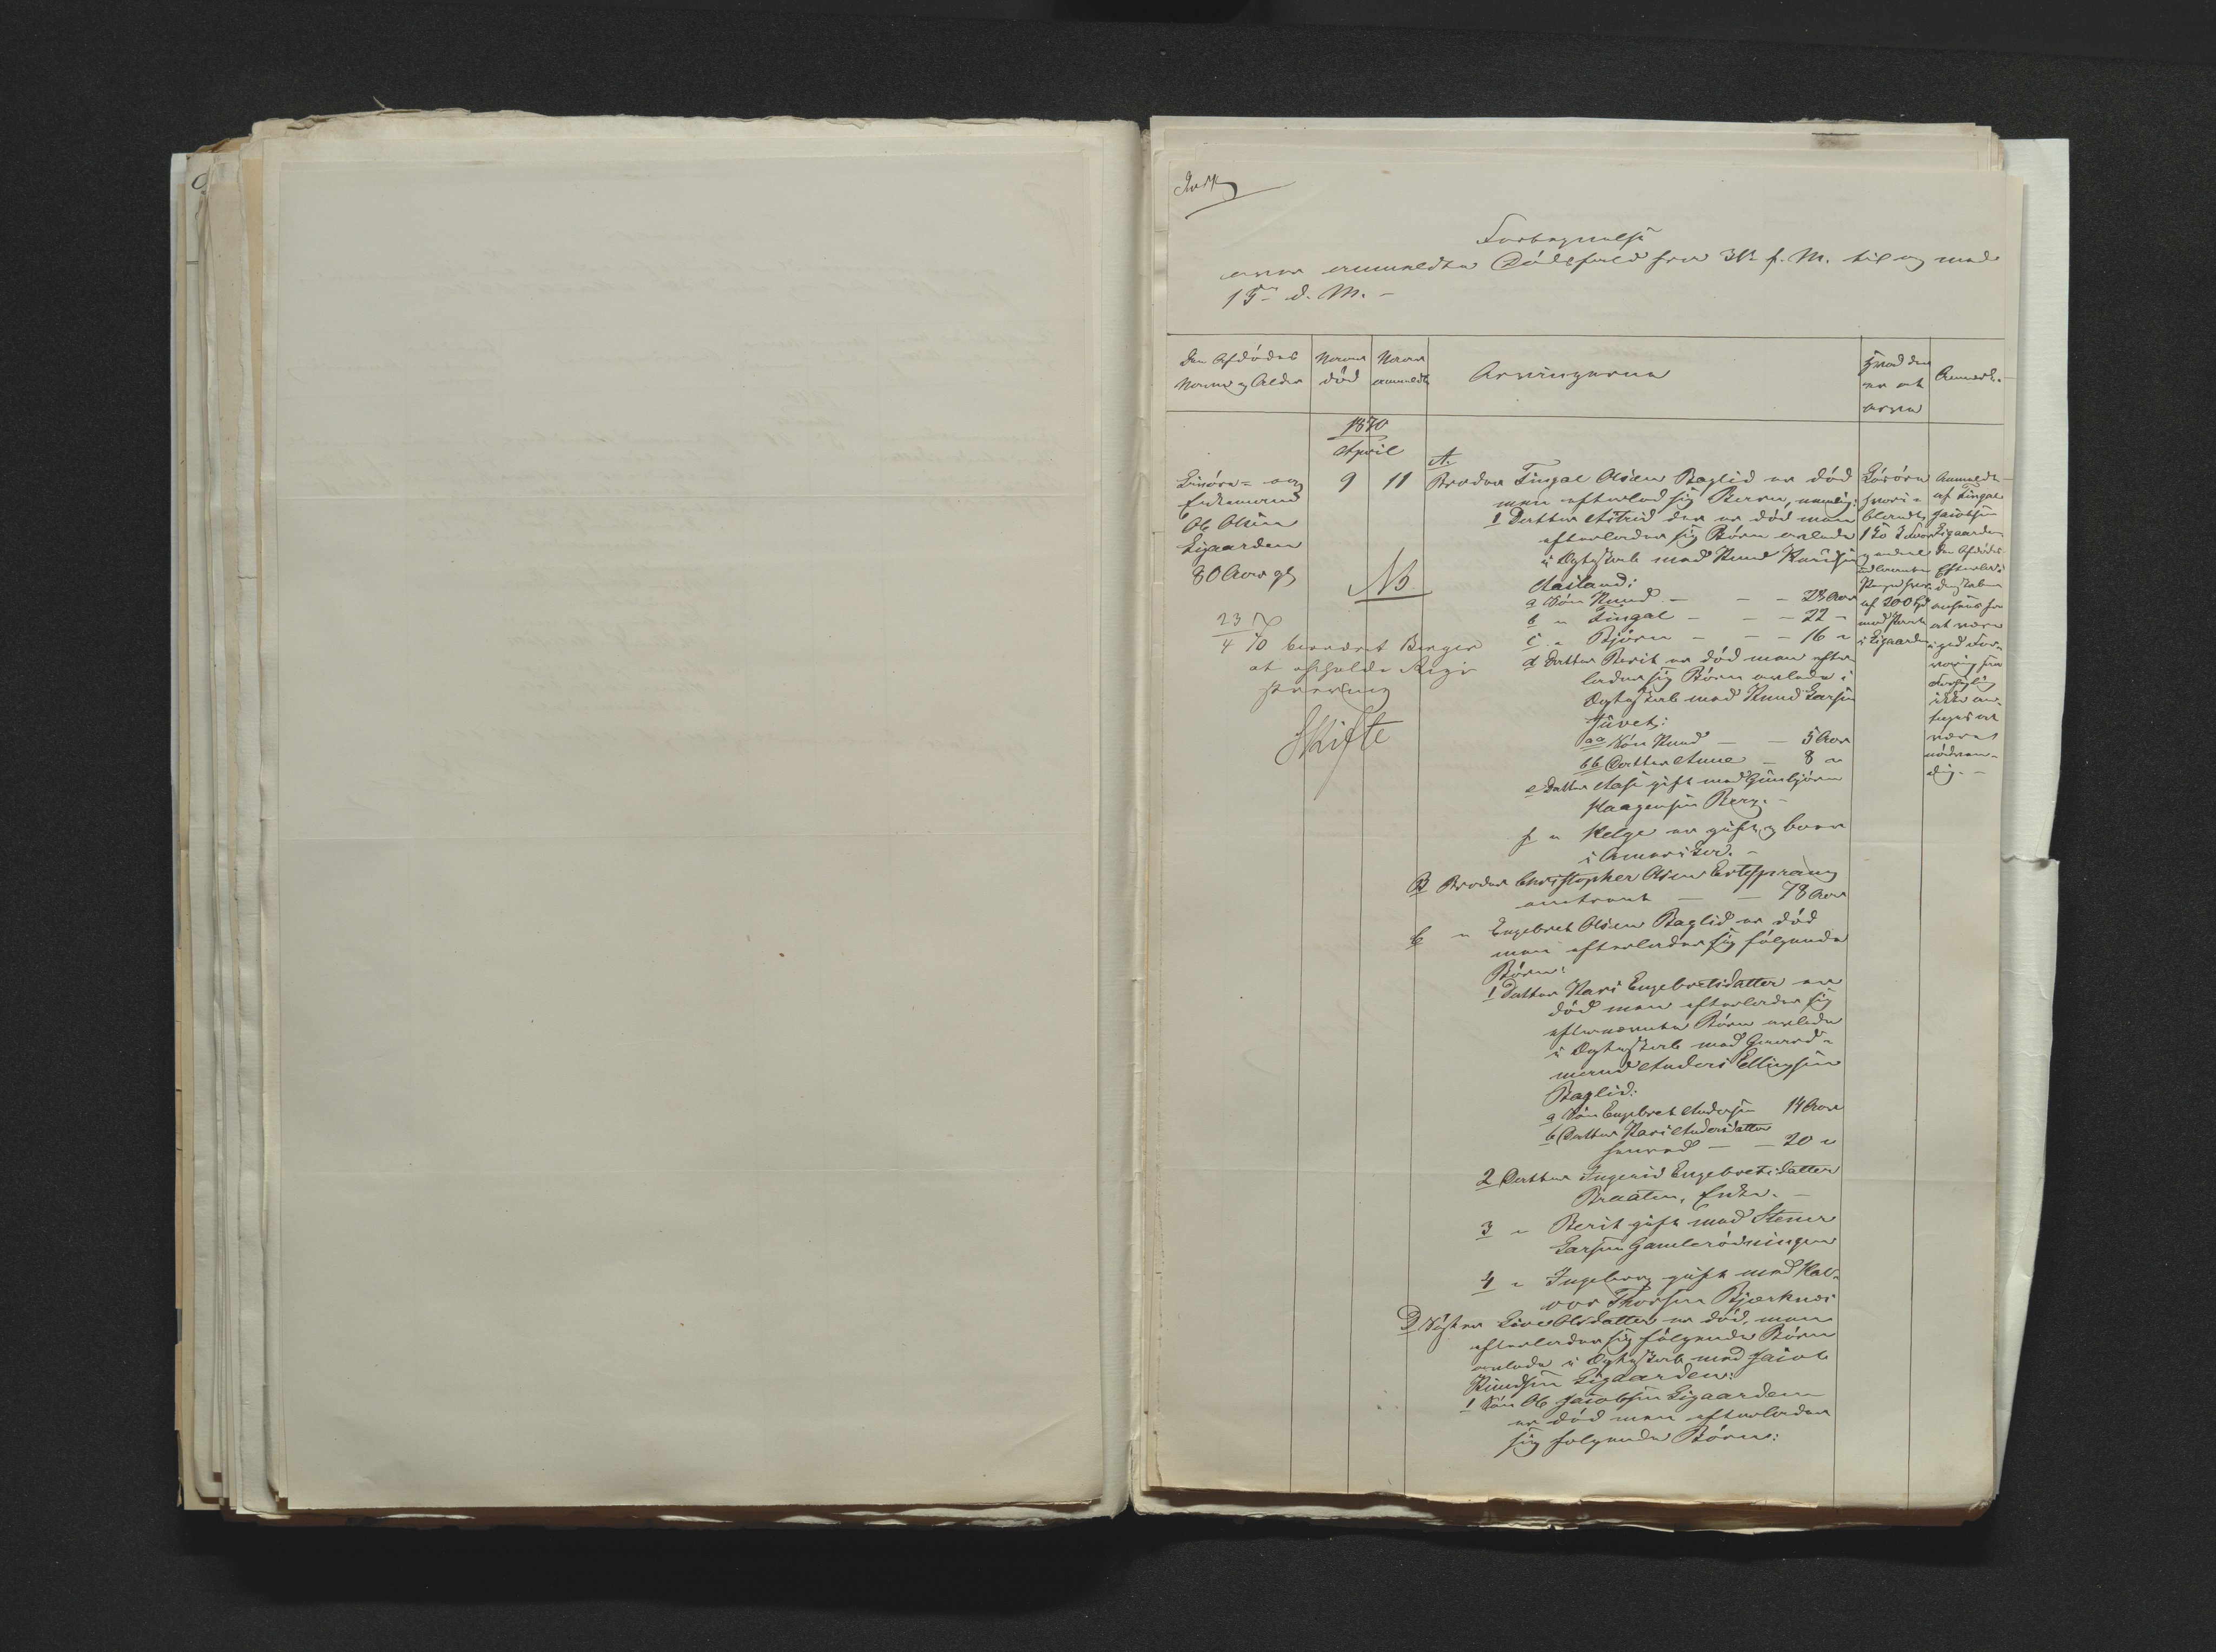 Fortegnelse
over anmeldte Dödsfald fra 31te f. M. til og med
15de d. M. –
Den Afdödes
Navn og Alder
Naar
död
Naar
anmeldt
Arvingerne
Hvad der
er at
arve
Anmærk.
1870
April
A.
og
Enkemand
Ole Olsen
Ligaarden
80 Aar gl
9
11
NB
23
4 70 beordret Berger
at afholde Regi
strering
Skifte
Broder Tingal Olsen Baglid er död
men efterlod sig Börn, nemlig:
1 Datter Astrid der er död men
efterlader sig Börn avlede
i Ægteskab med Knud Knudsen
Aasland:
a Sön Knud – – – 28 Aar
b " Tingal – – – 22 "
c " Björn – – – 16 "
d Datter Berit er död men efter-
lader sig Börn avlede i
Ægteskab med Knud Larsen
Juvet:
aa Sön Knud – – 5 Aar
bb Datter Anne – 8 "
e Datter Aase gift med Gunbjörn
Haagensen Berg. –
f " Helge er gift og boer
i Amerika. –
B Broder Christopher Olsen
omtrent – – 78 Aar
C " Engebret Olsen Baglid er död
men efterlader sig fölgende
Börn:
1 Datter Kari Engebretsdatter er
död men efterlader sig
efternævnte Börn avlede
i Ægteskab med Gaard-
mand Anders Ellingsen
Baglid:
a Sön Engebret Andersen 14 Aar
b Datter Kari Andersdatter
– – 20 "
2 Datter Ingerid Engebretsdatter
Braaten, Enke. –
3 " Berit gift med Stener
Larsen Gamlerödningen
4 " Ingeborg gift med Hal-
vor Thorsen Bjerknes
D Söster Live Olsdatter er död, men
efterlader sig fölgende Börn
avlede i Ægteskab med Jacob
Knudsen Ligaarden:
1 Sön Ole Jacobsen Ligaarden
er död men efterlader
sig fölgende Börn:
Lösöre
1 Ko
af 200 Spd
med Pant
i Ligaarden
Anmeldt
af Tingal
Jacobsen
Ligaarden
Den Afdödes
Efterla-
denskaber
ansees for
at være
i god For-
varing saa
Forsegling
ikke an-
toges at
være
nödven-
dig. –